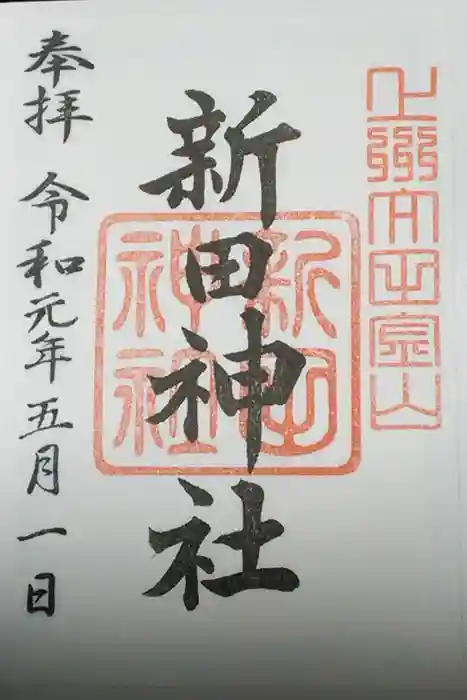 上州太田金山
新田神社
新田
神社
奉拝 令和元年五月一日